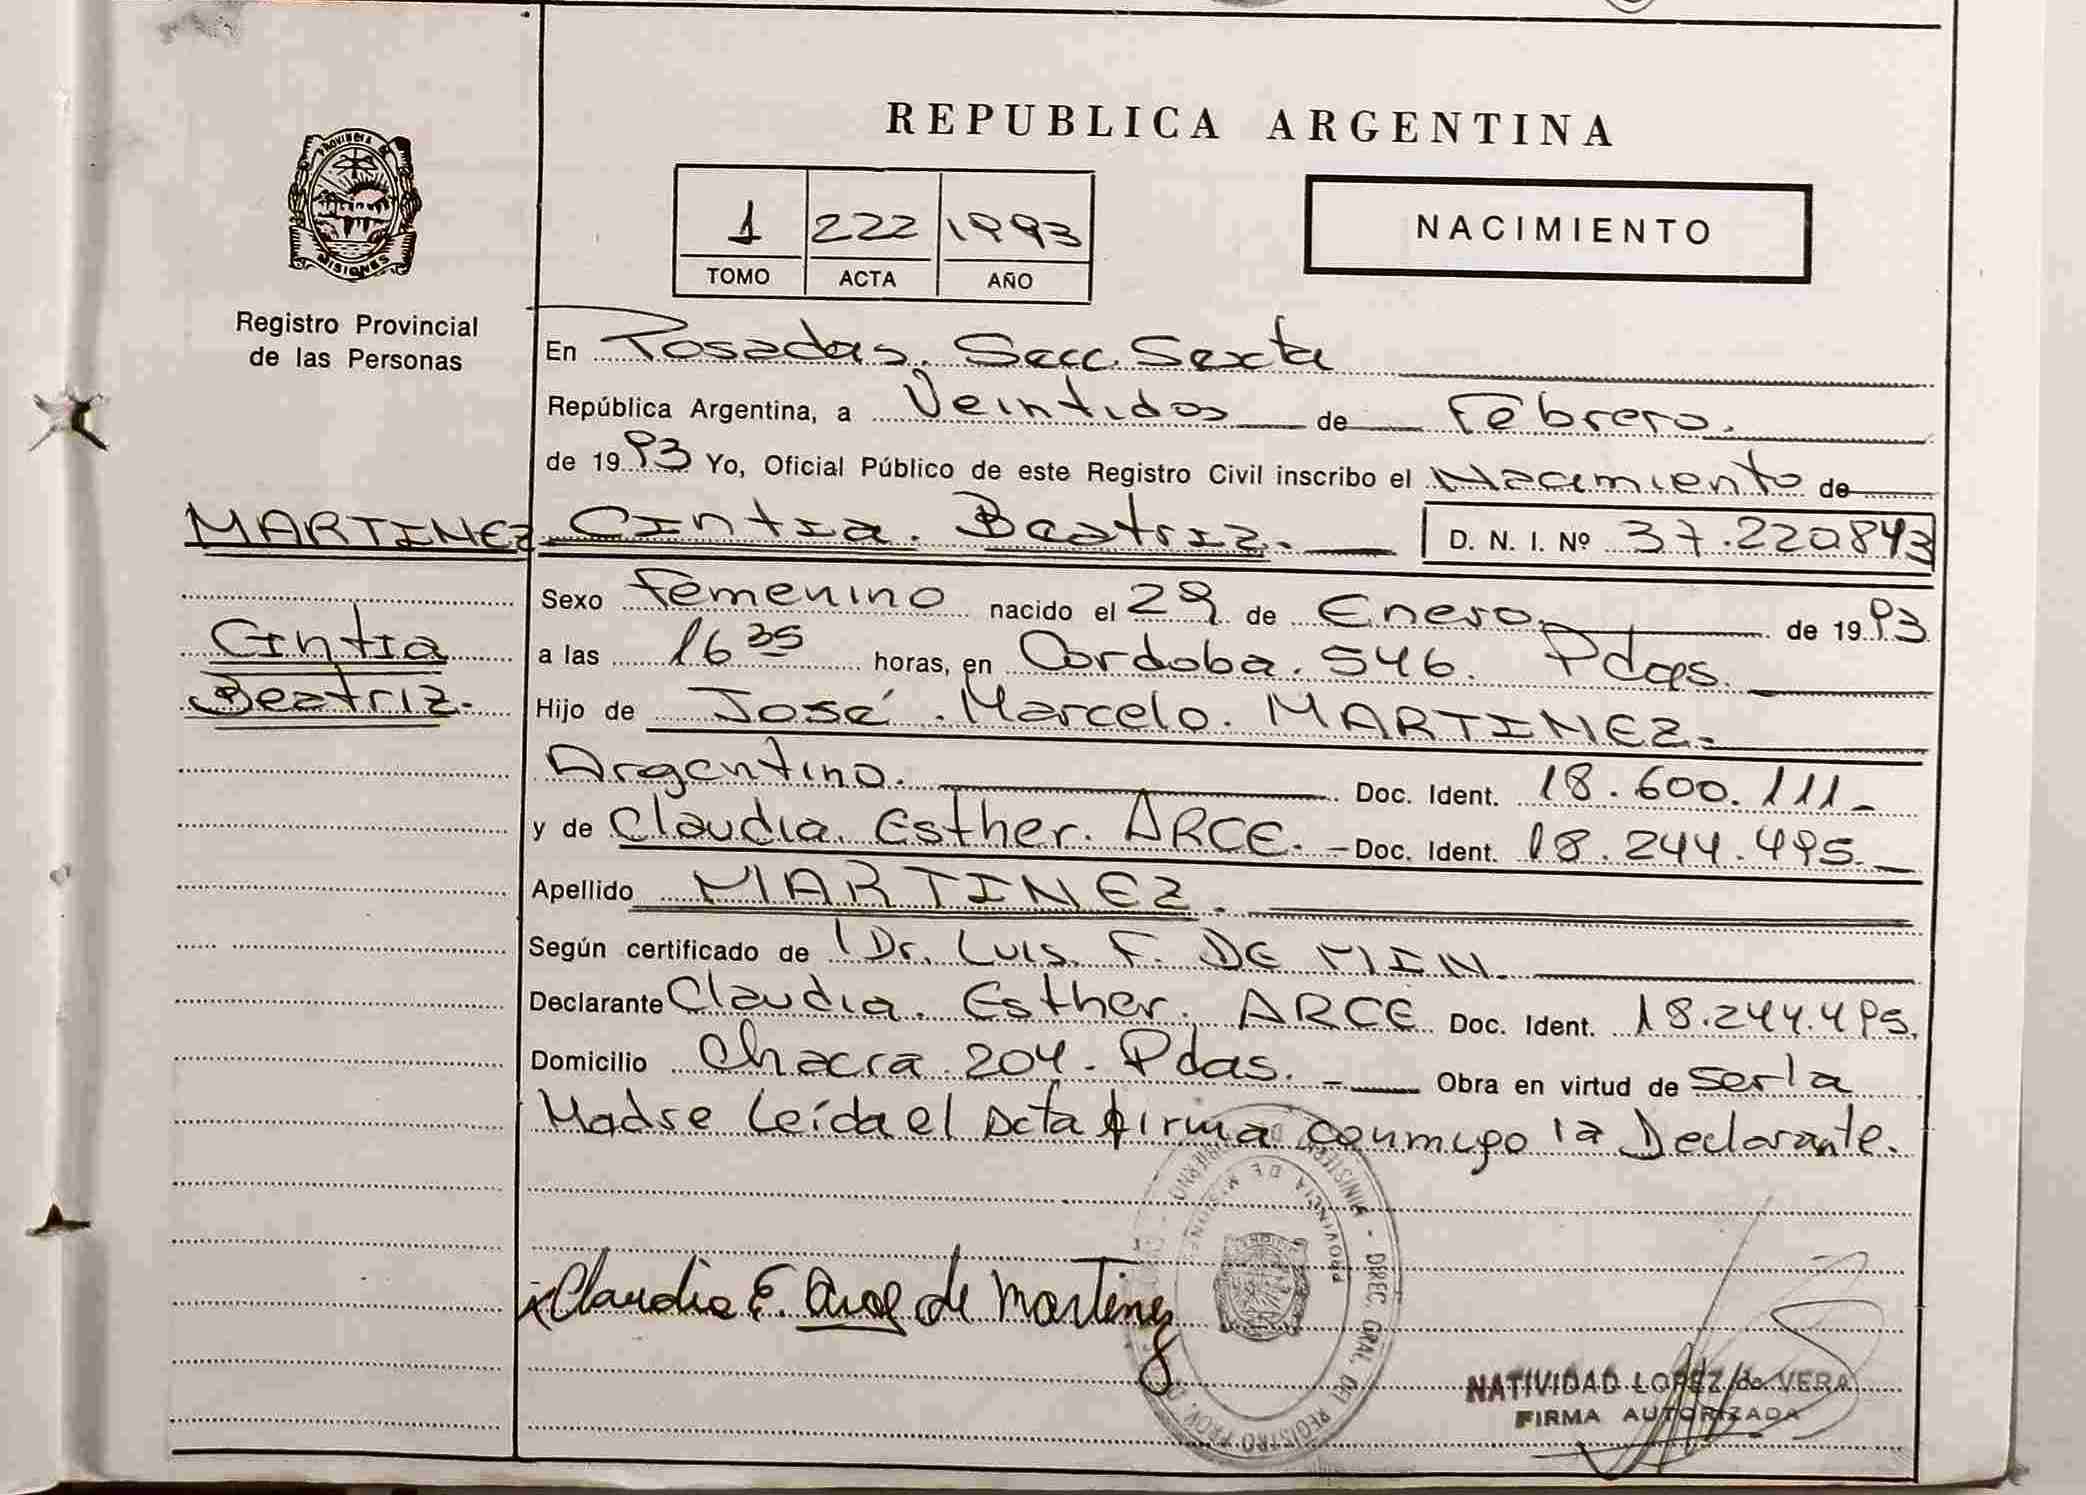 REPUBLICA ARGENTINA
PROVINCIA DE
MISIONES
1 222 1993
TOMO ACTA AÑO
NACIMIENTO
Registro Provincial
de las Personas
En Posadas. Secc. Sexta
República Argentina, a Veintidos de Febrero.
de 1993 Yo, Oficial Público de este Registro Civil inscribo el Nacimiento de
MARTINEZ Cintia. Beatriz. D. N. I. Nº 37.220843
Sexo Femenino nacido el 29 de Enero. de 1993
Cintia
a las 16 35 horas, en Cordoba. 546. Pdas.
Beatriz.
Hijo de José. Marcelo. MARTINEZ.
Argentino. Doc. Ident. 18.600.111
y de Claudia. Esther. ARCE. Doc. Ident. 18.244.495.
Apellido MARTINEZ.
Según certificado de Dr. Luis. F. DE MIN.
Declarante Claudia. Esther. ARCE Doc. Ident. 18.244.495.
Domicilio Chacra. 204. Pdas. Obra en virtud de serla
Madre Leída el Acta firma conmigo la Declarante.
PROVINCIA DE MISIONES
DIREC. GRAL. DEL REGISTRO PROV.
Claudia E. Arce de Martinez
NATIVIDAD LOPEZ de VERA
FIRMA AUTORIZADA